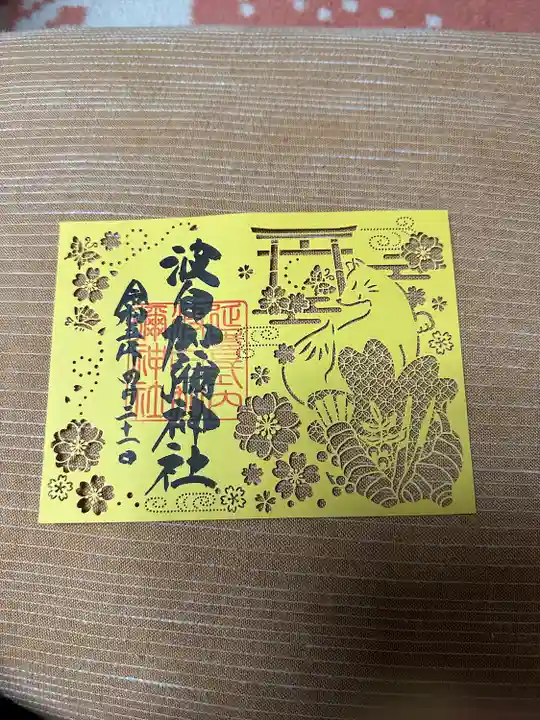 波自加彌神社
延喜式内
彌神社
令和五年 四月二十一日